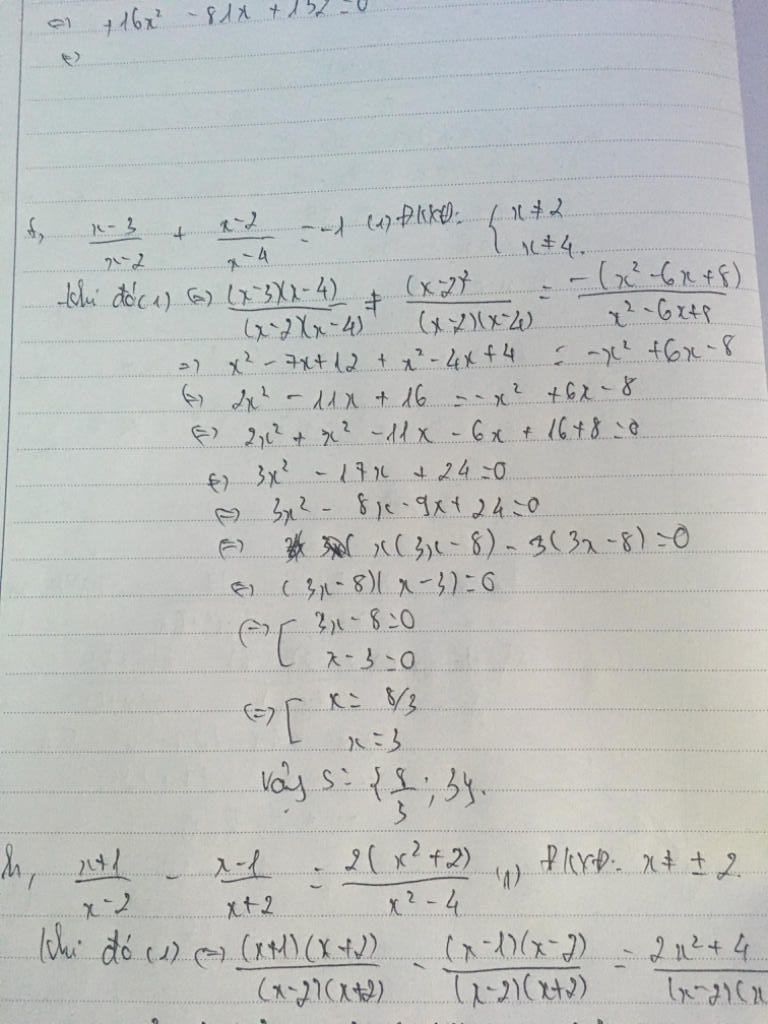 ⇔ +16x² - 81x + 132 = 0
⇔
f, (x-3)/(x-2) + (x-2)/(x-4) = -1 (1) ĐKXĐ: { x ≠ 2
x ≠ 4.
Khi đó (1) ⇔ (x-3)(x-4)/(x-2)(x-4) + (x-2)²/(x-2)(x-4) = -(x² - 6x + 8)/x² - 6x + 8
⇒ x² - 7x + 12 + x² - 4x + 4 = -x² + 6x - 8
⇔ 2x² - 11x + 16 = -x² + 6x - 8
⇔ 2x² + x² - 11x - 6x + 16 + 8 = 0
⇔ 3x² - 17x + 24 = 0
⇔ 3x² - 8x - 9x + 24 = 0
⇔ x(3x - 8) - 3(3x - 8) = 0
⇔ (3x - 8)(x - 3) = 0
⇔ [ 3x - 8 = 0
x - 3 = 0
⇔ [ x = 8/3
x = 3
Vậy S = {8/3; 3}.
h, (x+1)/(x-2) - (x-1)/(x+2) = 2(x² + 2)/(x² - 4) (1) ĐKXĐ: x ≠ ± 2.
Khi đó (1) ⇔ (x+1)(x+2)/(x-2)(x+2) - (x-1)(x-2)/(x-2)(x+2) = 2x² + 4/(x-2)(x